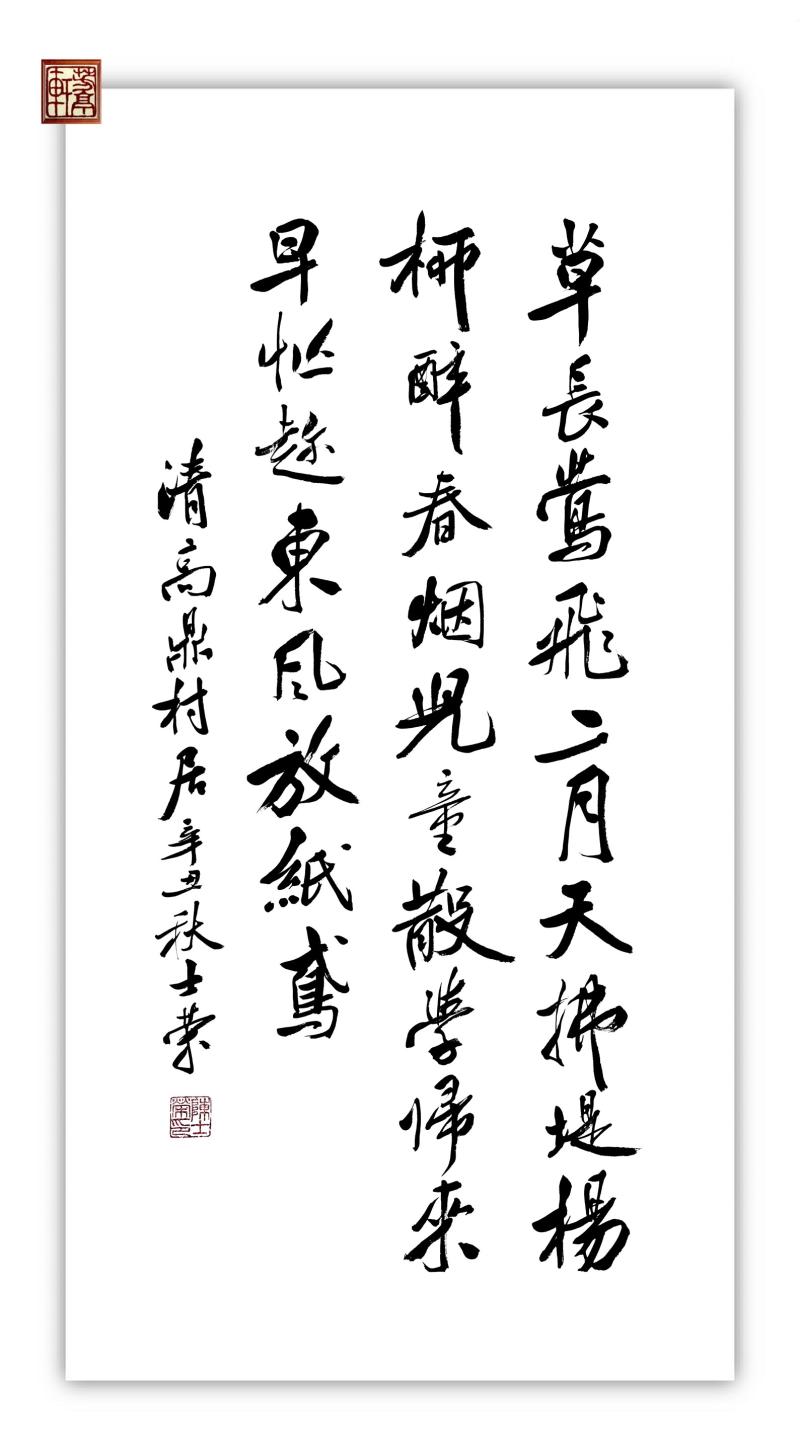 草長鶯飛二月天拂堤楊
柳醉春烟兒童散學歸來
早忙趁東風放紙鳶
清高鼎村居辛丑秋士榮
陳士榮印